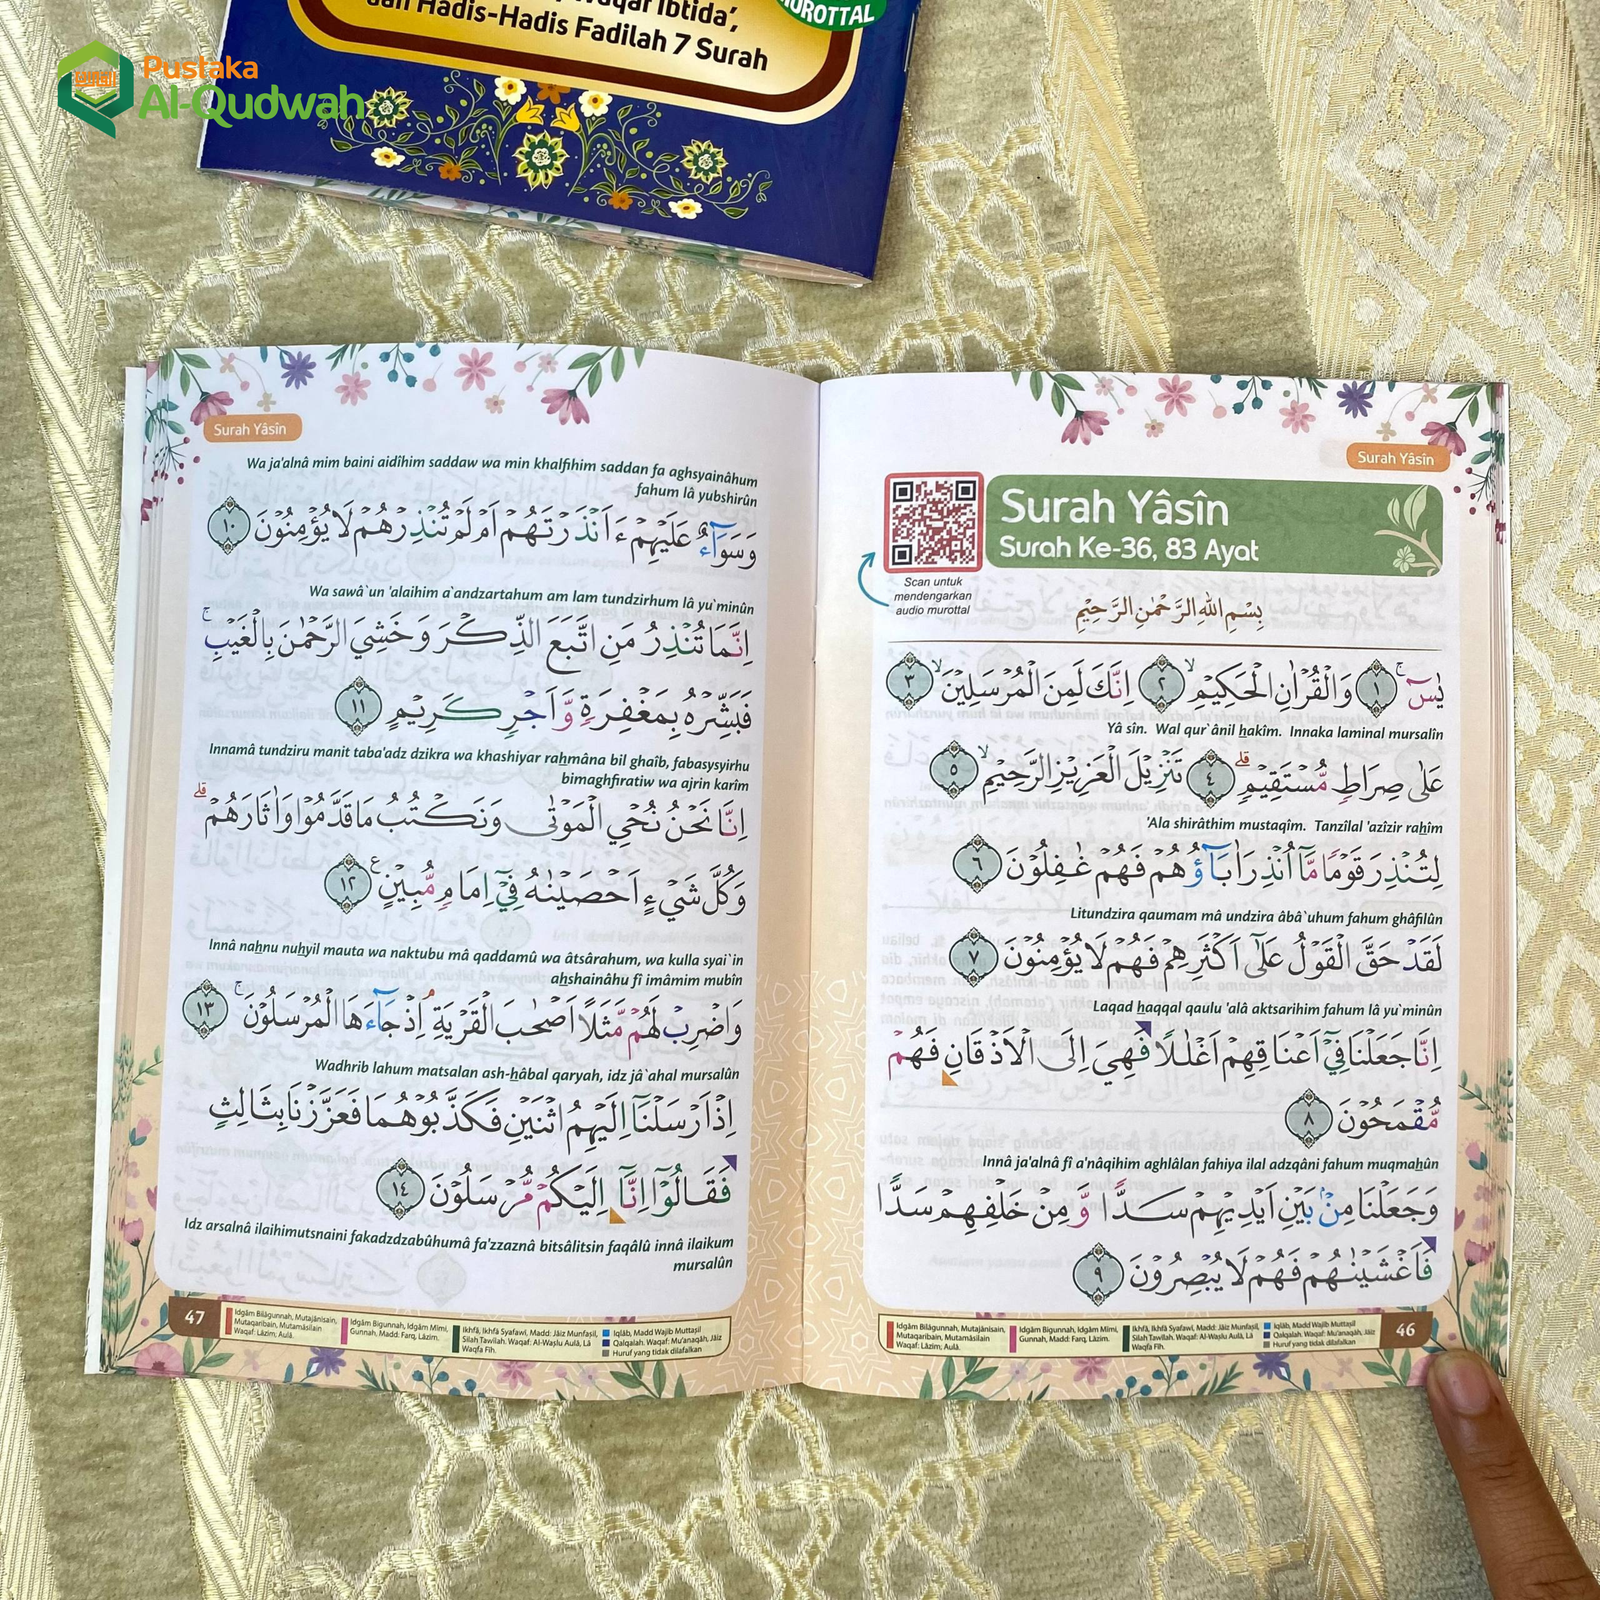 Pustaka
Al-Qudwah
Waqaf Ibtida’,
dan Hadis-Hadis Fadilah 7 Surah
MUROTTAL
Surah Yâsîn
Surah Yâsîn
Surah Ke-36, 83 Ayat
Scan untuk
mendengarkan
audio murottal
بِسْمِ اللّٰهِ الرَّحْمٰنِ الرَّحِيْمِ
يٰسۤ ۚ ١ وَالْقُرْاٰنِ الْحَكِيْمِۙ ٢ اِنَّكَ لَمِنَ الْمُرْسَلِيْنَۙ ٣
Yâ sîn. Wal qur`ânil hakîm. Innaka laminal mursalîn
عَلٰى صِرَاطٍ مُّسْتَقِيْمٍۗ ٤ تَنْزِيْلَ الْعَزِيْزِ الرَّحِيْمِۙ ٥
'Ala shirâthim mustaqîm. Tanzîlal 'azîzir rahîm
لِتُنْذِرَ قَوْمًا مَّآ اُنْذِرَ اٰبَاۤؤُهُمْ فَهُمْ غٰفِلُوْنَ ٦
Litundzira qaumam mâ undzira âbâ`uhum fahum ghâfilûn
لَقَدْ حَقَّ الْقَوْلُ عَلٰٓى اَكْثَرِهِمْ فَهُمْ لَا يُؤْمِنُوْنَ ٧
Laqad haqqal qaulu 'alâ aktsarihim fahum lâ yu`minûn
اِنَّا جَعَلْنَا فِيْٓ اَعْنَاقِهِمْ اَغْلٰلًا فَهِيَ اِلَى الْاَذْقَانِ فَهُمْ
مُّقْمَحُوْنَ ٨
Innâ ja'alnâ fî a'nâqihim aghlâlan fahiya ilal adzqâni fahum muqmahûn
وَجَعَلْنَا مِنْۢ بَيْنِ اَيْدِيْهِمْ سَدًّا وَّمِنْ خَلْفِهِمْ سَدًّا
فَاَغْشَيْنٰهُمْ فَهُمْ لَا يُبْصِرُوْنَ ٩
Idgâm Bilâgunnah, Mutajânisain,
Mutaqaribain, Mutamâsilain
Waqaf: Lâzim; Aulâ.
Idgâm Bigunnah, Idgâm Mîmi,
Gunnah, Madd: Farq, Lâzim.
Ikhfâ, Ikhfâ Syafawi, Madd: Jâiz Munfasil,
Silah Tawilah. Waqaf: Al-Waslu Aulâ, Lâ
Waqfa Fih.
Iqlâb, Madd Wajib Muttasil
Qalqalah. Waqaf: Mu'anaqah, Jâiz
Huruf yang tidak dilafalkan
46
Surah Yâsîn
Wa ja'alnâ mim baini aidîhim saddaw wa min khalfihim saddan fa aghsyainâhum
fahum lâ yubshirûn
وَسَوَاۤءٌ عَلَيْهِمْ ءَاَنْذَرْتَهُمْ اَمْ لَمْ تُنْذِرْهُمْ لَا يُؤْمِنُوْنَ ١٠
Wa sawâ`un 'alaihim a`andzartahum am lam tundzirhum lâ yu`minûn
اِنَّمَا تُنْذِرُ مَنِ اتَّبَعَ الذِّكْرَ وَخَشِيَ الرَّحْمٰنَ بِالْغَيْبِۚ
فَبَشِّرْهُ بِمَغْفِرَةٍ وَّاَجْرٍ كَرِيْمٍ ١١
Innamâ tundziru manit taba'adz dzikra wa khashiyar rahmâna bil ghaîb, fabasysyirhu
bimaghfiratiw wa ajrin karîm
اِنَّا نَحْنُ نُحْيِ الْمَوْتٰى وَنَكْتُبُ مَا قَدَّمُوْا وَاٰثَارَهُمْۗ
وَكُلَّ شَيْءٍ اَحْصَيْنٰهُ فِيْٓ اِمَامٍ مُّبِيْنٍ ࣖ ١٢
Innâ nahnu nuhyil mauta wa naktubu mâ qaddamû wa âtsârahum, wa kulla syai`in
ahshainâhu fî imâmim mubîn
وَاضْرِبْ لَهُمْ مَّثَلًا اَصْحٰبَ الْقَرْيَةِۘ اِذْ جَاۤءَهَا الْمُرْسَلُوْنَۚ ١٣
Wadhrib lahum matsalan ash-hâbal qaryah, idz jâ`ahal mursalûn
اِذْ اَرْسَلْنَآ اِلَيْهِمُ اثْنَيْنِ فَكَذَّبُوْهُمَا فَعَزَّزْنَا بِثَالِثٍ
فَقَالُوْٓا اِنَّآ اِلَيْكُمْ مُّرْسَلُوْنَ ١٤
Idz arsalnâ ilaihimutsnaini fakadzdzabûhumâ fa'zzaznâ bitsâlitsin faqâlû innâ ilaikum
mursalûn
47
Idgâm Bilâgunnah, Mutajânisain,
Mutaqaribain, Mutamâsilain
Waqaf: Lâzim; Aulâ.
Idgâm Bigunnah, Idgâm Mîmi,
Gunnah, Madd: Farq, Lâzim.
Ikhfâ, Ikhfâ Syafawi, Madd: Jâiz Munfasil,
Silah Tawilah. Waqaf: Al-Waslu Aulâ, Lâ
Waqfa Fih.
Iqlâb, Madd Wajib Muttasil
Qalqalah. Waqaf: Mu'anaqah, Jâiz
Huruf yang tidak dilafalkan